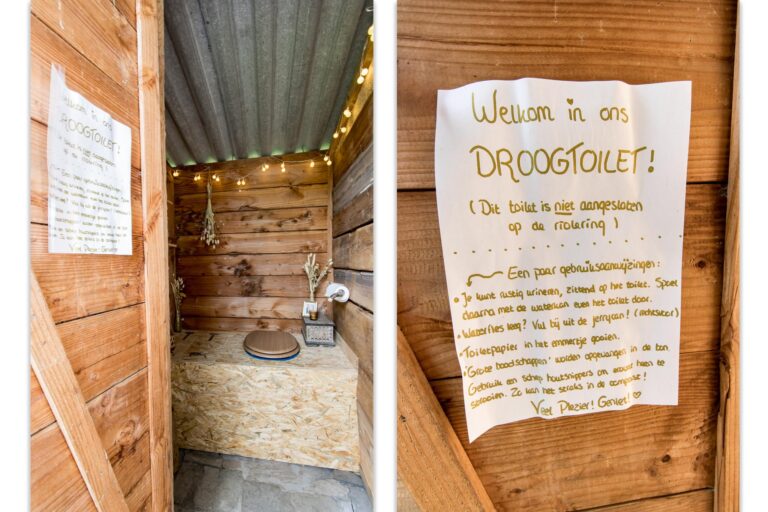 Welkom in ons
DROOGTOILET!
(Dit toilet is niet aangesloten
op de riolering)
Een paar gebruiksaanwijzingen:
• Je kunt rustig urineren, zittend op het toilet. Spoel
daarna met de waterkan even het toilet door.
• Water leeg? Vul bij uit de jerrycan! (rechtsachter)
• Toiletpapier in het emmertje gooien.
• Grote boodschappen worden opgevangen in de ton.
Gebruik een schep houtsnippers om erover heen te
strooien. Zo kan het straks in de compost!
Veel Plezier! Geniet!